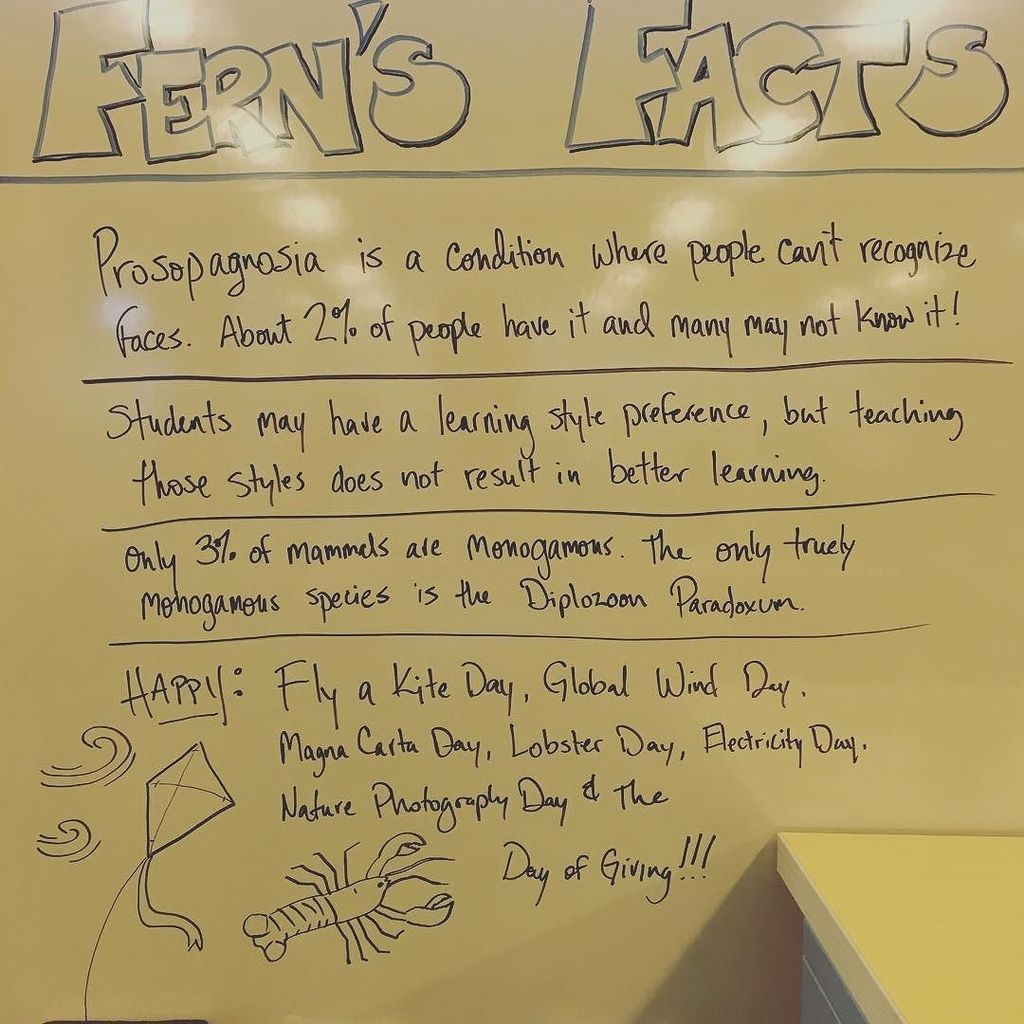 FERN'S FACTS
Prosopagnosia is a condition where people can't recognize
faces. About 2% of people have it and many may not know it!
Students may have a learning style preference, but teaching
those styles does not result in better learning.
Only 3% of mammels are monogamous. The only truely
monogamous species is the Diplozoon Paradoxum.
HAPPY: Fly a Kite Day, Global Wind Day.
Magna Carta Day, Lobster Day, Electricity Day.
Nature Photography Day & The
Day of Giving!!!